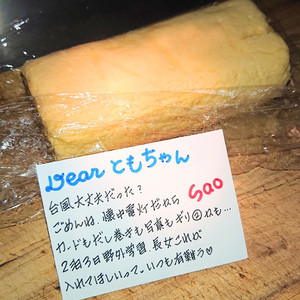 Dear ともちゃん
台風大丈夫だった?
ごめんね、懐中電灯だから
sao
カードもだし巻きも写真もギリ回ねも…
2泊3日野外学習、長女これが
入れてほしいって。いつも有難う♡